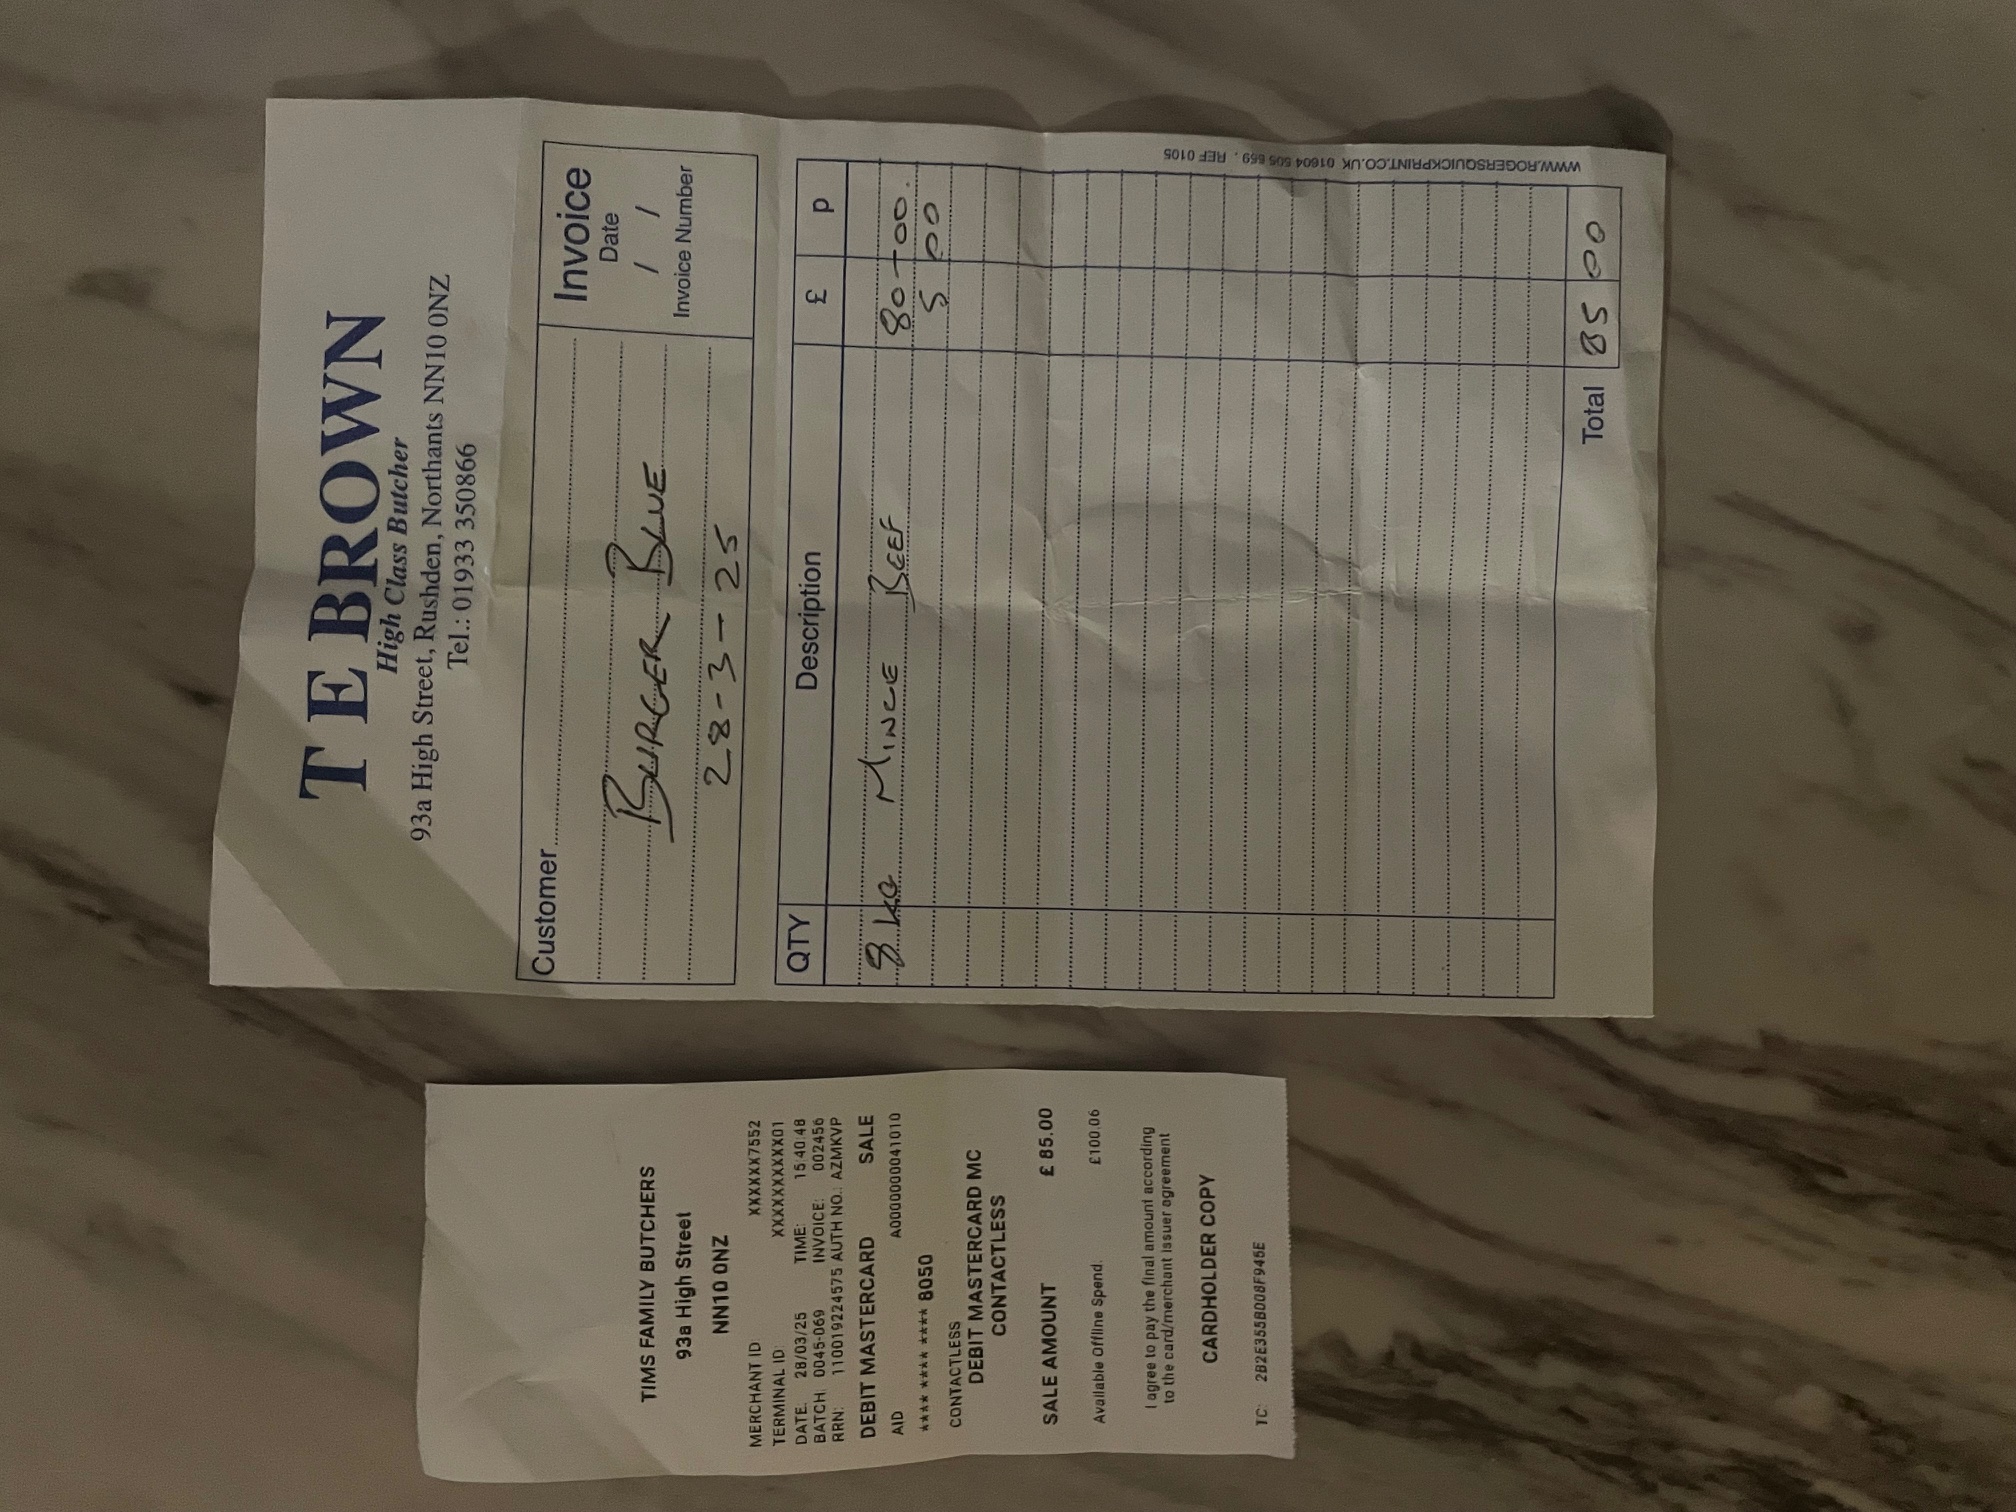 TIMS FAMILY BUTCHERS
93a High Street
NN10 0NZ
MERCHANT ID: XXXXXX7552
TERMINAL ID: XXXXXXXXXX01
DATE: 28/03/25 TIME: 15:40:48
BATCH: 0045-069 INVOICE: 002456
RRN: 110019224575 AUTH NO.: AZMKVP
DEBIT MASTERCARD SALE
AID A0000000041010
**** **** **** 8050
CONTACTLESS
DEBIT MASTERCARD MC
CONTACTLESS
SALE AMOUNT £ 85.00
Available Offline Spend: £100.06
I agree to pay the final amount according
to the card/merchant issuer agreement
CARDHOLDER COPY
TC: 2B2E355B008F945E
T E BROWN
High Class Butcher
93a High Street, Rushden, Northants NN10 0NZ
Tel.: 01933 350866
Customer
BURGER BLUE
28-3-25
Invoice
Date
/ /
Invoice Number
QTY Description £ p
8 KG MINCE BEEF 80-00.
5 00
Total 85 00
WWW.ROGERSQUICKPRINT.CO.UK 01604 505 659 . REF 0105